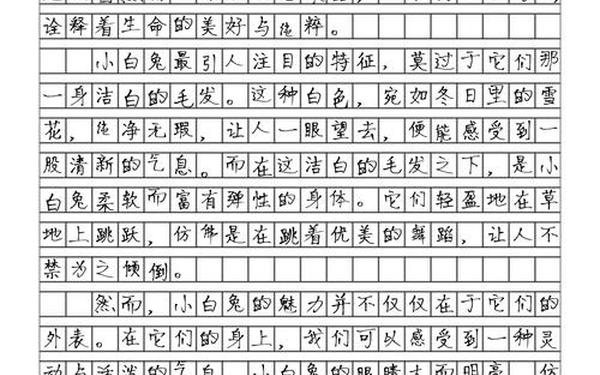 诠释着生命的美好与纯粹。
小白兔最引人注目的特征，莫过于它们那
一身洁白的毛发。这种白色，宛如冬日里的雪
花，纯净无瑕，让人一眼望去，便能感受到一
股清新的气息。而在这洁白的毛发之下，是小
白兔柔软而富有弹性的身体。它们轻盈地在草
地上跳跃，仿佛是在跳着优美的舞蹈，让人不
禁为之倾倒。
然而，小白兔的魅力并不仅仅在于它们的
外表。在它们的身上，我们可以感受到一种灵
动与活泼的气息。小白兔的眼睛大而明亮，仿